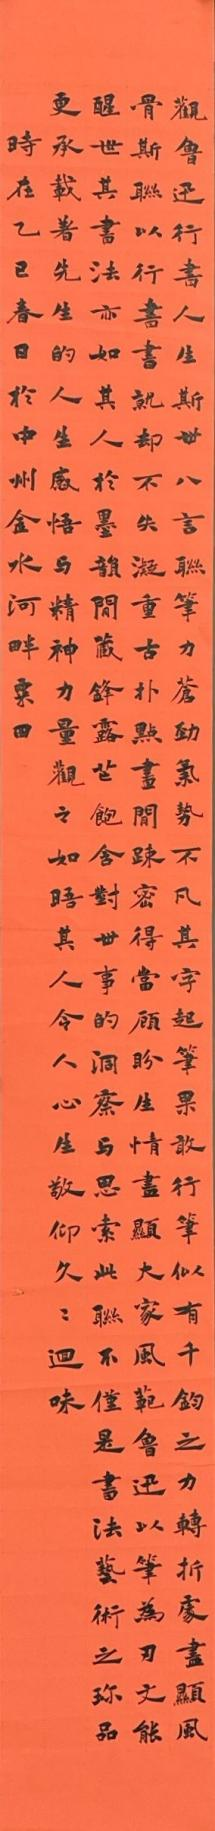 觀魯迅行書人生斯世八言聯筆力蒼勁氣勢不凡其字起筆果敢行筆似有千鈞之力轉折處盡顯風
骨斯聯以行書書就却不失凝重古朴點畫間疎密得當顧盼生情盡顯大家風範魯迅以筆為刃文能
醒世其書法亦如其人於墨韻間藏鋒露芒飽含對世事的洞察与思索此聯不僅是書法藝術之珎品
更承載著先生的人生感悟与精神力量觀之如晤其人令人心生敬仰久〻迴味
時在乙巳春日於中州金水河畔栗田